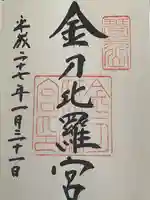 金刀比羅宮
平成二十七年一月三十一日